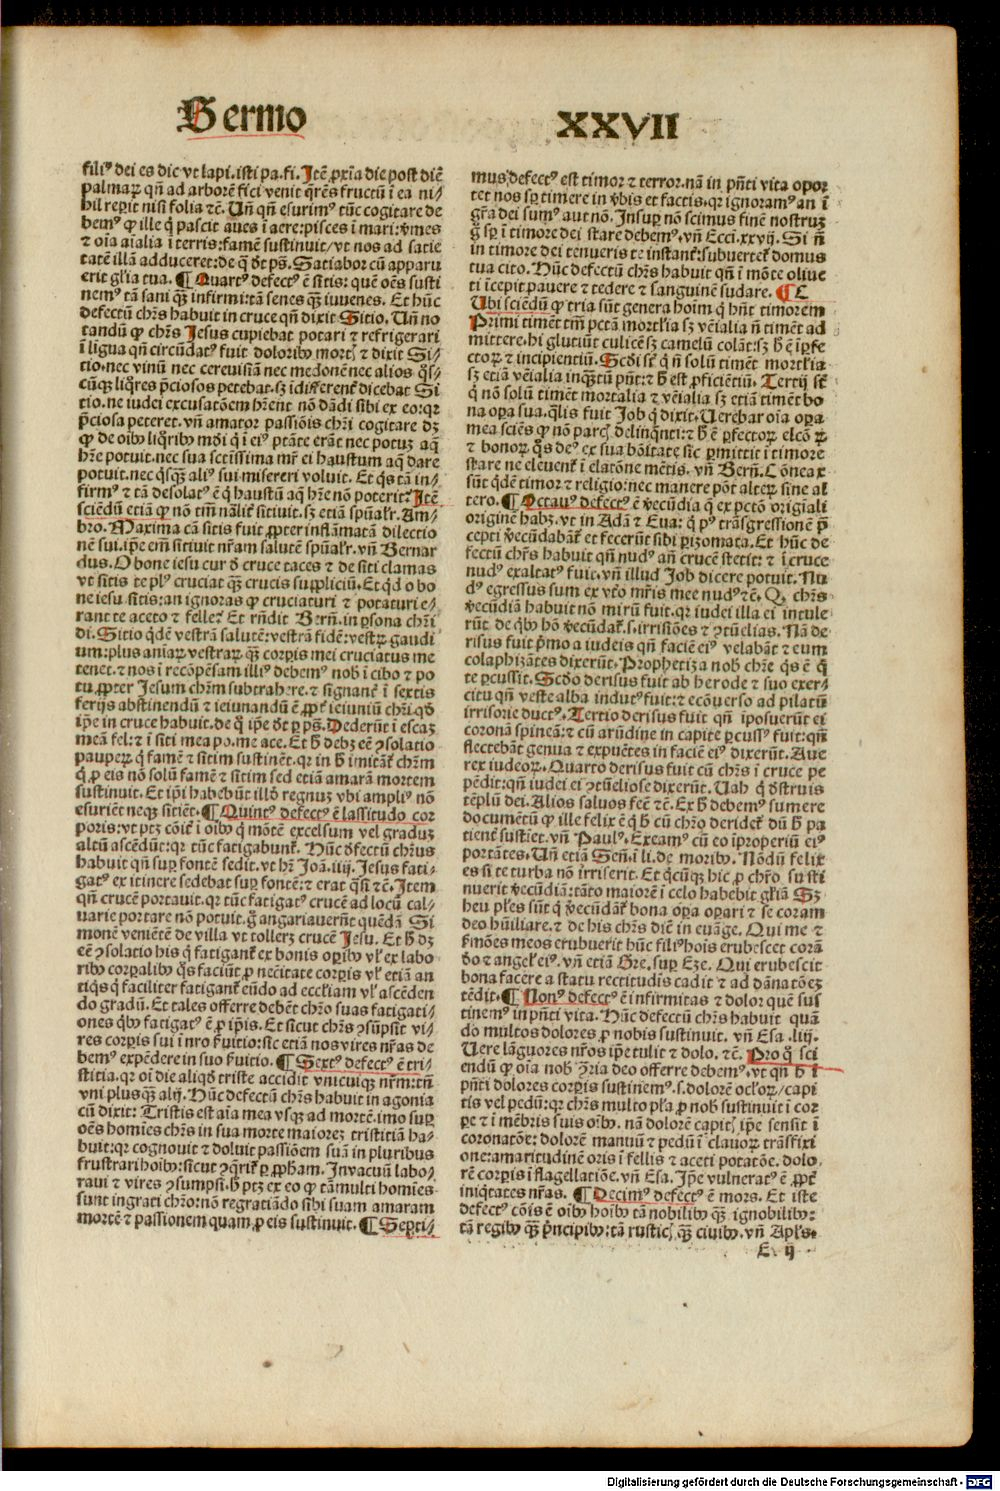 Sermo XXVII
filiꝰ dei es dic vt lapi. isti pa. fi. Itē ꝓxīa die post diē
palmaꝝ qñ ad arborē fici venit q̄rēs fructū ī ea ni⸗
hil reꝑit nisi folia ⁊c̄. Uñ qñ esurimꝰ tūc cogitare de
bemꝰ ꝙ ille q̄ pascit aues ī aere: pisces ī mari: v̄mes
⁊ oīa aīalia ī terris: famē sustinuit/ vt nos ad satie
tatē illā adduceret: de q̄ dt̄ ps̄. Satiabor cū apparu
erit gl̄ia tua. ¶ Quartꝰ defectꝰ ē sitis: quē oēs susti
nemꝰ tā sani qꝫ̄ infirmi: tā senes qꝫ̄ iuuenes. Et hūc
defectū chr̄s habuit in cruce qñ dixit Sitio. Uñ no
tandū ꝙ chr̄s Iesus cupiebat potari ⁊ refrigerari
ī līgua qñ circūdatꝰ fuit doloribꝰ mortꝭ ⁊ dixit Si⸗
tio. nec vinū nec cereuisiā nec medonē nec alios q̄s⸗
cūqꝫ liq̄res p̄ciosos petebat. sꝫ īdifferent̄ dicebat Si
tio. ne iudei excusatōem hr̄ent nō dādi sibi ex eo: qꝛ
p̄ciosa peteret. vñ amator passiōis chr̄i cogitare dꝫ
ꝙ de oībꝰ liq̄ribꝰ mūdi q̄ ī eiꝰ ptāte erāt nec potuꝫ aq̄
hr̄e potuit. nec sua sctissima mr̄ ei haustum aq̄ dare
potuit. nec q̄sqꝫ̄ aliꝰ sui misereri voluit. Et q̄s tā in⸗
firmꝰ ⁊ tā desolatꝰ ē q̄ haustū aq̄ hr̄e nō poterit? Itē
sciēdū etiā ꝙ nō tm̄ nālit̄ sitiuit. sꝫ etiā spūalr̄. Am⸗
bro. Maxima cā sitis fuit ꝓpter inflāmatā dilectio
nē sui. ip̄e em̄ sitiuit nr̄am salutē spūalr̄. vñ Bernar
dus. O bone iesu cur d̄ cruce taces ⁊ de siti clamas
vt sitis te plꝰ cruciat qꝫ̄ crucis suppliciū. Et qd̄ o bo
ne iesu sitis: an ignoras ꝙ cruciaturi ⁊ potaturi e⸗
rant te aceto ⁊ felle? Et rn̄dit Berñ. in ꝑsona chr̄i
di. Sitio qdē vestrā salutē: vestrā fidē: vestꝝ gaudi
um: plus aniaꝝ vestraꝝ qꝫ̄ corꝑis mei cruciatus me
tenet. ⁊ nos ī recōpēsam illiꝰ debemꝰ nob̄ ī cibo ⁊ po
tu ꝓpter Iesum chr̄m subtrahere. ⁊ signant̄ ī sextis
ferijs abstinendū ⁊ ieiunandū ē ꝓpt̄ ieiuniū chr̄i qd̄
ip̄e in cruce habuit. de q̄ ip̄e dt̄ ꝑ ps̄. Dederūt ī escaꝫ
meā fel: ⁊ ī siti mea po. me ace. Et h̄ debꝫ eē ꝯsolatio
pauperꝝ q̄ famē ⁊ sitim sustinēt. qꝛ in h̄ imitāt̄ chr̄m
q̄ ꝓ eis nō solū famē ⁊ sitim sed etiā amarā mortem
sustinuit. Et ip̄i habebūt illd̄ regnuꝫ vbi ampliꝰ nō
esuriēt neqꝫ sitiēt. ¶ Quintꝰ defectꝰ ē lassitudo cor
poris: vt ptꝫ cōit̄ ī oībꝰ q̄ mōtē excelsum vel graduꝫ
altū ascēdūt: qꝛ tūc fatigabunt̄. Hūc d̄fectū chr̄us
habuit qñ suꝑ fontē sedit. vt hr̄ Ioā. iiij. Iesus fati⸗
gatꝰ ex itinere sedebat suꝑ fontē: ⁊ erat q̄si ⁊c̄. Item
qñ crucē portauit. qꝛ tūc fatigatꝰ crucē ad locū cal⸗
uarie portare nō potuit. ḡ angariauerūt quēdā Si
monē veniētē de villa vt tolleꝫ crucē Iesu. Et h̄ dꝫ
eē ꝯsolatio his q̄ fatigant̄ ex bonis oꝑibꝰ vl̄ ex labo
ribꝰ corꝑalibꝰ q̄s faciūt ꝓ necitate corꝑis vl̄ etiā an
tiq̄s q̄ faciliter fatigant̄ eūdo ad eccliam vl̄ ascēden
do gradū. Et tales offerre debēt chr̄o suas fatigati⸗
ones q̄bꝰ fatigatꝰ ē ꝓ ip̄is. Et sicut chr̄s ꝯsūpsit vi⸗
res corꝑis sui ī nr̄o ẜuitio: sic etiā nos vires nr̄as de
bemꝰ expēdere in suo ẜuitio. ¶ Sextꝰ defectꝰ ē tri⸗
stitia. qꝛ oī die aliqd̄ triste accidit vnicuiqꝫ nr̄m: tm̄
vni plus qꝫ̄ alij. Hūc defectū chr̄s habuit in agonia
cū dixit: Tristis est aīa mea vsqꝫ ad mortē. imo suꝑ
oēs homīes chr̄s in sua morte maioreꝫ tristitiā ha⸗
buit: qꝛ cognouit ⁊ doluit passiōem suā in pluribus
frustrari hoībꝰ: sicut ꝯq̄rit̄ ꝑ ꝓpham. In vacuū labo⸗
raui ⁊ vires ꝯsumpsi. h̄ ptꝫ ex eo ꝙ tā multi homīes
sunt ingrati chr̄o: nō regratiādo sibi suam amaram
mortē ⁊ passionem quam ꝓ eis sustinuit. ¶ Septi⸗
mus defectꝰ est timor ⁊ terror. nā in pn̄ti vita opor
tet nos sp̄ timere in v̄bis et factis. qꝛ ignoramꝰ an ī
gr̄a dei sumꝰ aut nō. Insuꝑ nō scimus finē nostruꝫ
ḡ sp̄ ī timore dei stare debemꝰ. vñ Ecci. xxvij. Si ñ
in timore dei tenueris te instant̄: subuertet̄ domus
tua cito. Hūc defectū chr̄s habuit qñ ī mōte oliue
ti īcepit pauere ⁊ tedere ⁊ sanguinē sudare. ¶ E
Ubi sciēdū ꝙ tria sūt genera hoīm q̄ hn̄t timorem
Primi timēt tm̄ pctā mortl̄ia sꝫ vēialia ñ timēt ad
mittere. hi glutiūt culicē sꝫ camelū colāt: sꝫ h̄ ē īꝑfe
ctoꝝ ⁊ incipientiū. Scd̄i st̄ q̄ ñ solū timēt mortl̄ia
sꝫ etiā vēialia inqꝫ̄tū pn̄t: ⁊ h̄ est ꝓficiētiū. Tertij st̄
q̄ nō solū timēt mortalia ⁊ vēialia sꝫ etiā timēt bo
na oꝑa sua. q̄lis fuit Iob q̄ dixit. Uerebar oīa oꝑa
mea sciēs ꝙ nō parcꝭ delinq̄nti: ⁊ h̄ ē ꝑfectoꝝ elcōꝝ
⁊ bonoꝝ. q̄s deꝰ ex sua bōitate sic ꝑmittit ī timore
stare ne eleuent̄ ī elatōne mētis. vñ Berñ. Cōnexa
sūt qdē timor ⁊ religio: nec manere pōt alteꝝ sine al
tero. ¶ Octauꝰ defectꝰ ē v̄ecūdia q̄ ex pctō origīali
originē habꝫ. vt in Adā ⁊ Eua: q̄ pꝰ trāsgressionē p̄
cepti v̄ecūdabāt̄ et fecerūt sibi ꝑizomata. Et hūc de
fectū chr̄s habuit qñ nudꝰ añ crucē stetit: ⁊ ī cruce
nudꝰ exaltatꝰ fuit. vñ illud Iob dicere potuit. Nu
dꝰ egressus sum ex vt̄o mr̄is mee nudꝰ ⁊c̄. Qꝙ chr̄s
v̄ecūdiā habuit nō mirū fuit. qꝛ iudei illa ei intule
rūt de q̄bꝰ hō v̄ecūdat̄. s. irrisiōes ⁊ ꝯtūelias. Nā de
risus fuit p̄mo a iudeis qñ faciē eiꝰ velabāt ⁊ eum
colaphizātes dixerūt. Prophetiza nob̄ chr̄e q̄s ē q̄
te ꝑcussit. Scd̄o derisus fuit ab herode ⁊ suo exer⸗
citu qñ veste alba indutꝰ fuit: ⁊ ecōuerso ad pilatū
irrisorie ductꝰ. Tertio derisus fuit qñ īposuerūt ei
coronā spineā: ⁊ cū arūdine in capite ꝑcussꝰ fuit: qñ
flectebāt genua ⁊ expuētes in faciē eiꝰ dixerūt. Aue
rex iudeoꝝ. Quarto derisus fuit cū chr̄s ī cruce pe
pēdit: qñ iudei ei ꝯtūeliose dixerūt. Uah q̄ d̄struis
tēplū dei. Alios saluos fec̄ ⁊c̄. Ex h̄ debemꝰ sumere
documētū ꝙ ille felix ē q̄ h̄ cū chr̄o deridet̄ dū h̄ pa
tient̄ sustīet. vñ Paulꝰ. Exeamꝰ cū eo īproperiū eiꝰ
portātes. Uñ etiā Señ. ī li. de moribꝰ. Nōdū felix
es si te turba nō irriserit. Et q̄cūqꝫ hic ꝓ chr̄o susti
nuerit v̄ecūdiā: tāto maiorē ī celo habebit gl̄iam Sꝫ
heu pl̄es sūt q̄ v̄ecūdāt̄ bona oꝑa oꝑari ⁊ se coram
deo hūiliare. ⁊ de his chr̄s dic̄ in euāge. Qui me ⁊
ẜmōes meos erubuerit hūc filiꝰ hois erubescet corā
deo ⁊ angelꝭ eiꝰ. vñ etiā Gre. suꝑ Eze. Qui erubescit
bona facere a statu rectitudis cadit ⁊ ad dānatōeꝫ
tēdit. ¶ Nonꝰ defectꝰ ē infirmitas ⁊ dolor quē sus
tinemꝰ in pn̄ti vita. Hūc defectū chr̄s habuit quā
do multos dolores ꝓ nobis sustinuit. vñ Esa. liij.
Uere lāguores nr̄os ip̄e tulit ⁊ dolo. ⁊c̄. Pro q̄ sci
endū ꝙ oīa nob̄ ꝯr̄ia deo offerre debemꝰ. vt qñ h̄ ī
pn̄ti dolores corꝑis sustinemꝰ. s. dolorē ocl̄oꝝ/ capi
tis vel pedū: qꝛ chr̄s multo pl̄a ꝓ nob̄ sustinuit ī cor
ꝑe ⁊ ī mēbris suis oībꝰ. nā dolorē capitꝭ ip̄e sensit ī
coronatōe: dolorē manuū ⁊ pedū ī clauoꝝ trāsfixi
one: amaritudinē oris ī fellis ⁊ aceti potatōe. dolo⸗
rē corꝑis ī flagellatiōe. vñ Esa. Ip̄e vulneratꝰ ē ꝓpt̄
iniq̄tates nr̄as. ¶ Decimꝰ defectꝰ ē mors. Et iste
defectꝰ cōis ē oībꝰ hoībꝰ tā nobilibꝰ qꝫ̄ ignobilibꝰ:
tā regibꝰ qꝫ̄ p̄ncipibꝰ: tā rusticꝭ qꝫ̄ ciuibꝰ. vñ Apl̄s.
E ij
Digitalisierung gefördert durch die Deutsche Forschungsgemeinschaft - DFG